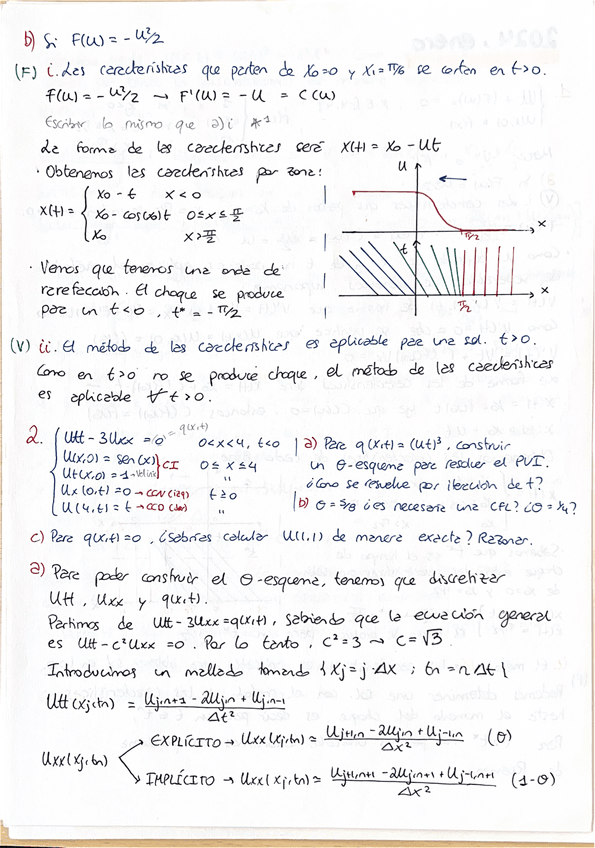 b) Si F(u) = -u²/2
(F) i. Las características que parten de x₀=0 y x₁=π/6 se cortan en t>0.
F(u) = -u²/2 → F'(u) = -u = C(u)
Escribir lo mismo que a)i *¹
La forma de las características será x(t) = x₀ - ut
· Obtenemos las características por zona:
x(t) = { x₀ - t x<0
x₀ - cos(x₀)t 0≤x≤π/2
x₀ x>π/2
u
x
π/2
t
x
π/2
· Vemos que tenemos una onda de
rarefacción. El choque se produce
para un t<0, t* = -π/2
(V) ii. El método de las características es aplicable para una sol. t>0.
Como en t>0 no se produce choque, el método de las características
es aplicable ∀ t>0.
2. { Utt - 3Uxx = 0 = q(x,t) 0<x<4, t<0
U(x,0) = sen(x)
Ut(x,0) = 1 } CI 0≤x≤4
Ux(0,t) = 0 → CCN (izq) t≥0
U(4,t) = t → CCD (der) "
a) Para q(x,t) = (Ut)³, construir
un θ-esquema para resolver el PVI.
¿Cómo se resuelve por iteración de t?
b) θ = 5/8 ¿es necesaria una CFL? ¿θ = 1/4?
c) Para q(x,t)=0, ¿Sabrías calcular U(1,1) de manera exacta? Razonar.
a) Para poder construir el θ-esquema, tenemos que discretizar
Utt, Uxx y q(x,t).
Partimos de Utt - 3Uxx = q(x,t), sabiendo que la ecuación general
es Utt - c²Uxx = 0. Por lo tanto, c² = 3 → c = √3.
Introducimos un mallado tomando {xj = j·Δx ; tn = n Δt}
Utt(xj,tn) = (Uj,n+1 - 2Uj,n + Uj,n-1) / Δt²
Uxx(xj,tn)
EXPLÍCITO → Uxx(xj,tn) ≃ (Uj+1,n - 2Uj,n + Uj-1,n) / Δx² (θ)
IMPLÍCITO → Uxx(xj,tn) ≃ (Uj+1,n+1 - 2Uj,n+1 + Uj-1,n+1) / Δx² (1-θ)